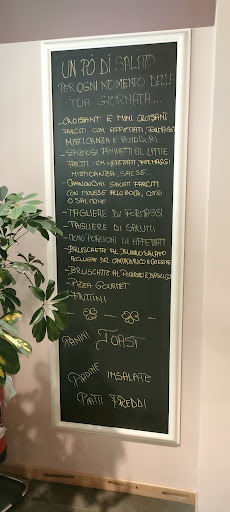 UN PÒ DI SALATO
PER OGNI MOMENTO DELLA
TUA GIORNATA...
- CROISANT E MINI CROISANT
FARCITI CON AFFETTATI, FORMAGGI
MISTICANZA E
- SFIZIOSI PANINETTI AL LATTE
FARCITI CON AFFETTATI, FORMAGGI
MISTICANZA, SALSE..
- SALATI FARCITI
CON MOUSSE ALLO COTTO
O SALMONE
- TAGLIERE DI FORMAGGI
- TAGLIERE DI SALUMI
- MONO PORZIONI DI AFFETTATI
- BRUSCHETTE AL BURRO SALATO
ACCIUGHE DEL CANTABRICO E
- BRUSCHETTE AL POMODORO E BASILICO
- PIZZA GOURMET
- TANTINI
PANINI TOAST
PIADINE INSALATE
PIATTI FREDDI